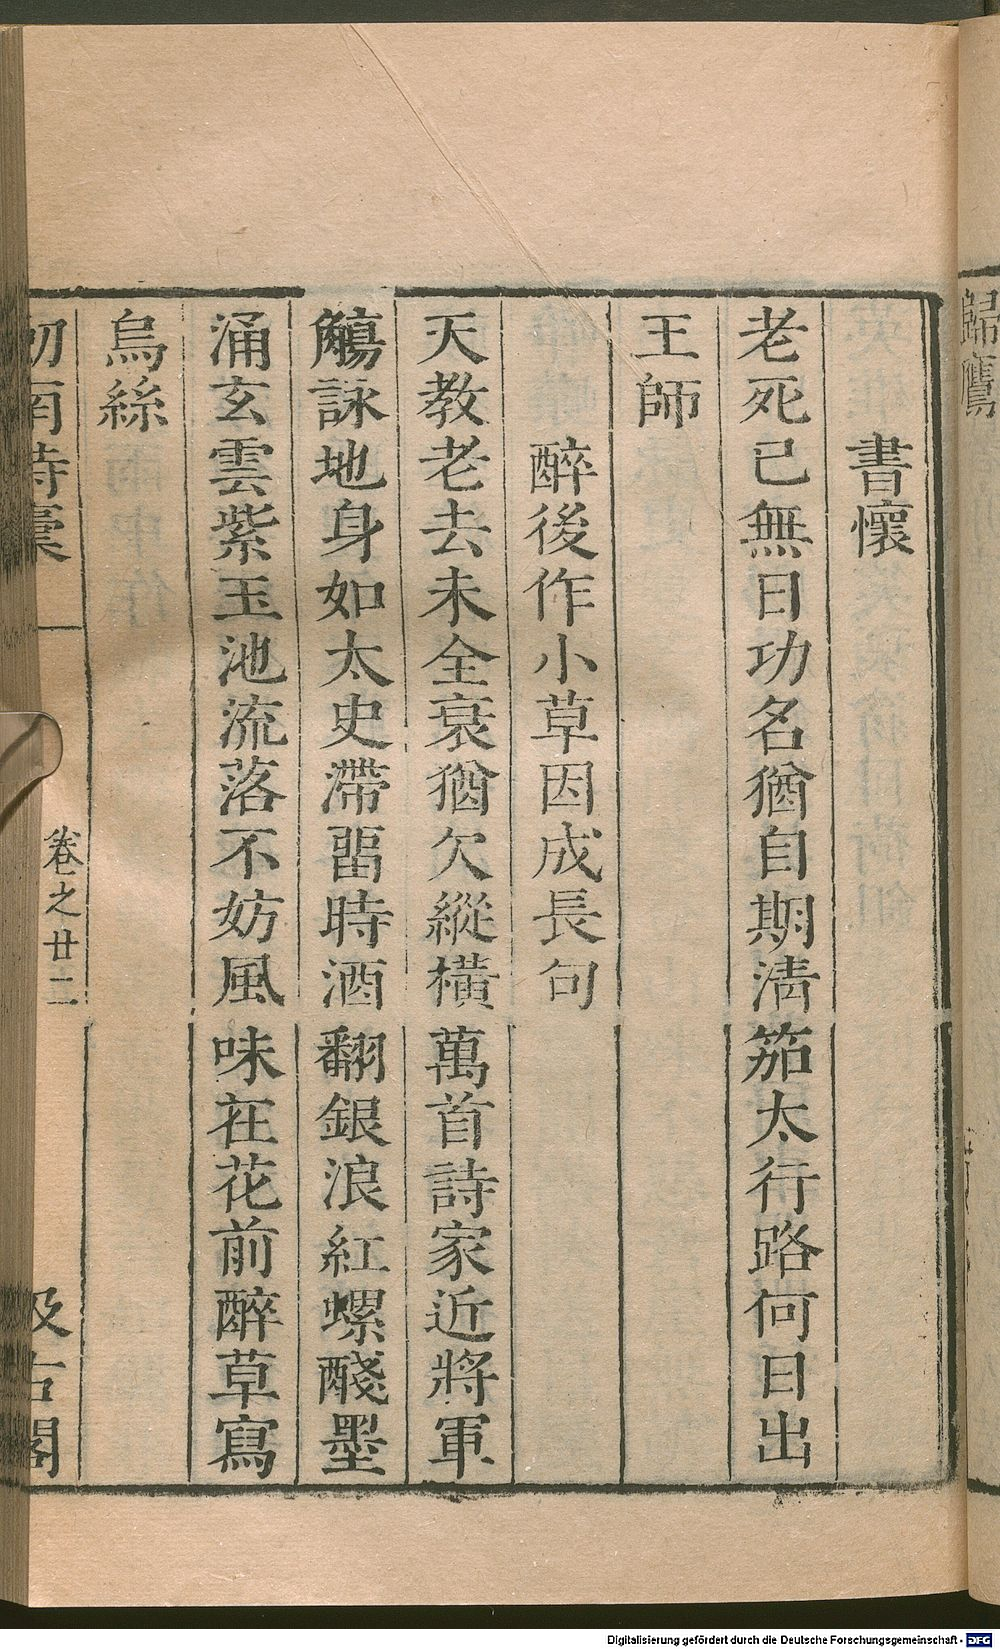 歸鷹
書懷
老死已無日功名猶自期清笳太行路何日出
王師
醉後作小草因成長句
天教老去未全衰猶欠縱橫萬首詩家近將軍
觴詠地身如太史滯畱時酒翻銀浪紅螺醆墨
涌玄雲紫玉池流落不妨風味在花前醉草寫
烏絲
卷之廿二
汲古閣
Digitalisierung gefördert durch die Deutsche Forschungsgemeinschaft - DFG